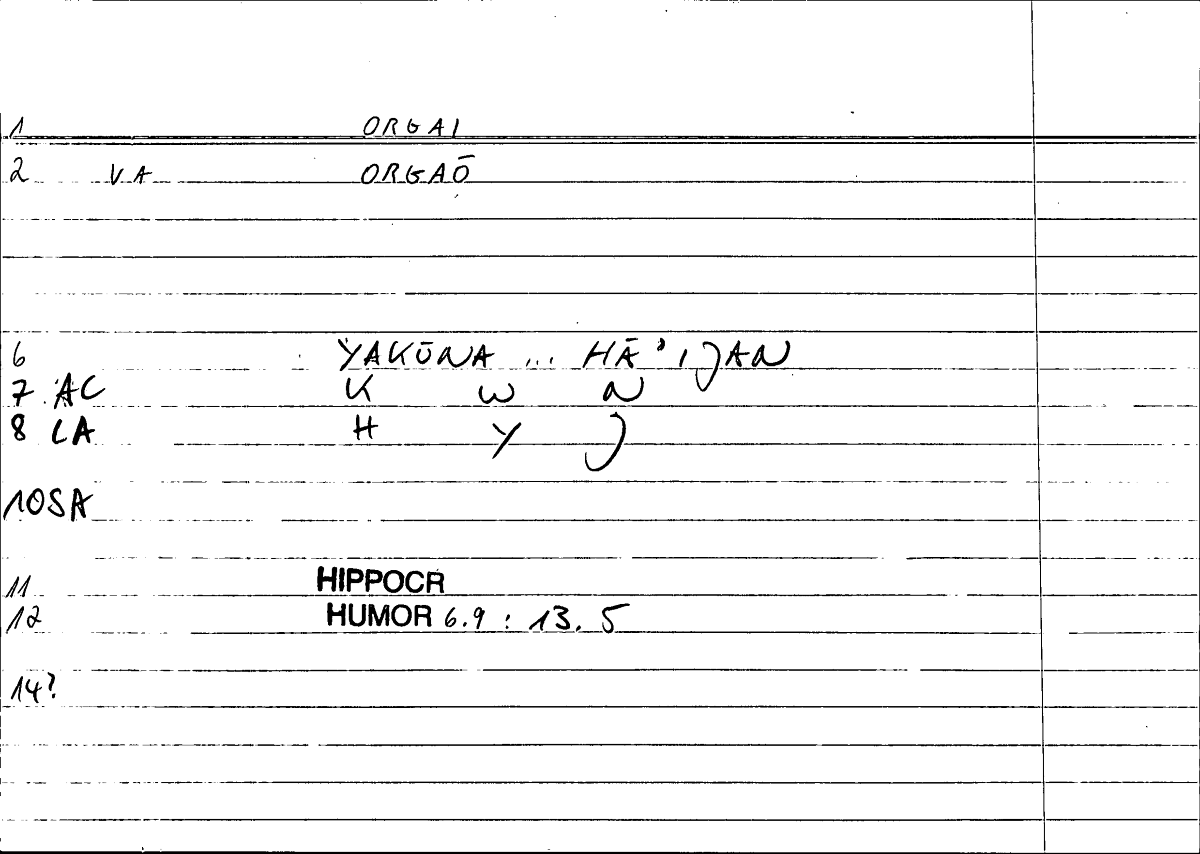 1 ORGAI
2 VA ORGAŌ
6 YAKŪNA ... HĀ'IJAN
7 AC K W N
8 LA H Y J
10SA
11 HIPPOCR
12 HUMOR 6.9 : 13.5
14?